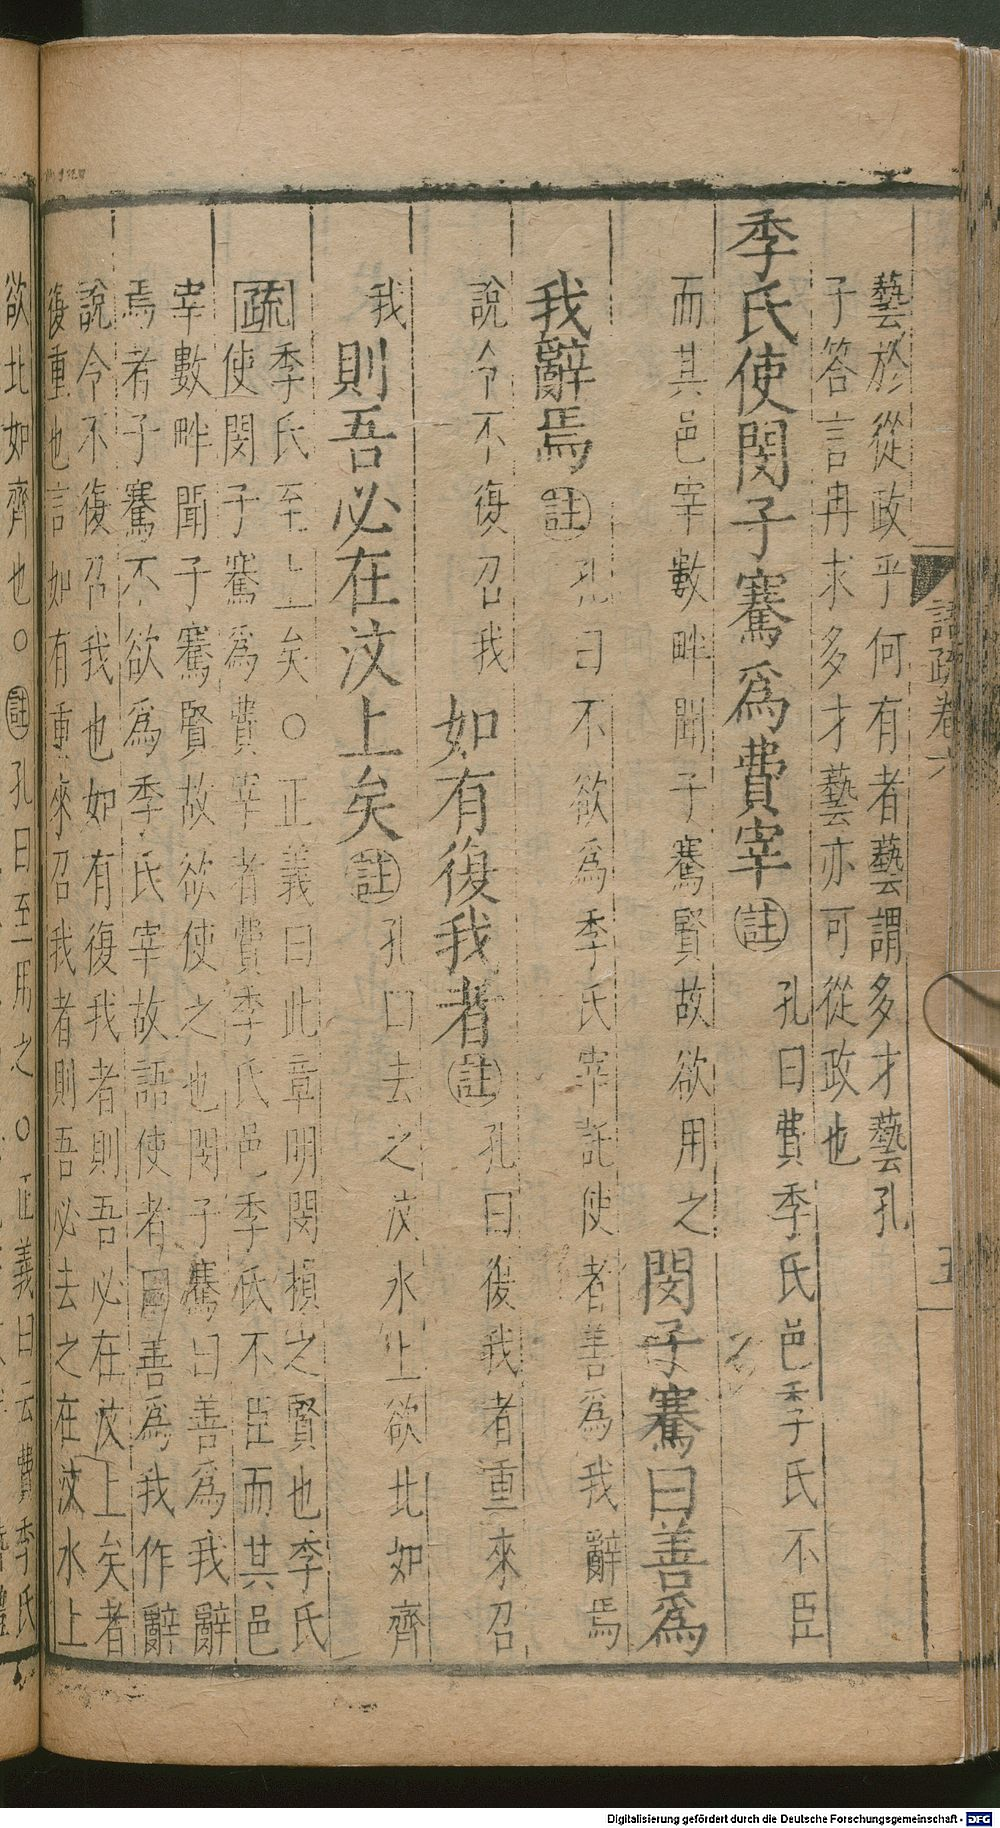 語疏卷六
五
藝於從政乎何有者藝謂多才藝孔
子答言冉求多才藝亦可從政也
季氏使閔子騫爲費宰註孔曰費季氏邑季氏不臣
而其邑宰數畔聞子騫賢故欲用之閔子騫曰善爲
我辭焉註孔曰不欲爲季氏宰託使者善爲我辭焉
說令不復召我如有復我者註孔曰復我者重來召
我則吾必在汶上矣註孔曰去之汶水上欲北如齊
疏季氏至上矣○正義曰此章明閔損之賢也季氏
使閔子騫爲費宰者費季氏邑季氏不臣而其邑
宰數畔聞子騫賢故欲使之也閔子騫曰善爲我辭
焉者子騫不欲爲季氏宰故語使者曰善爲我作辭
說令不復召我也如有復我者則吾必在汶上矣者
復重也言如有重來召我者則吾必去之在汶水上
欲北如齊也○註孔曰至用之○正義曰云費季氏
Digitalisierung gefördert durch die Deutsche Forschungsgemeinschaft - DFG